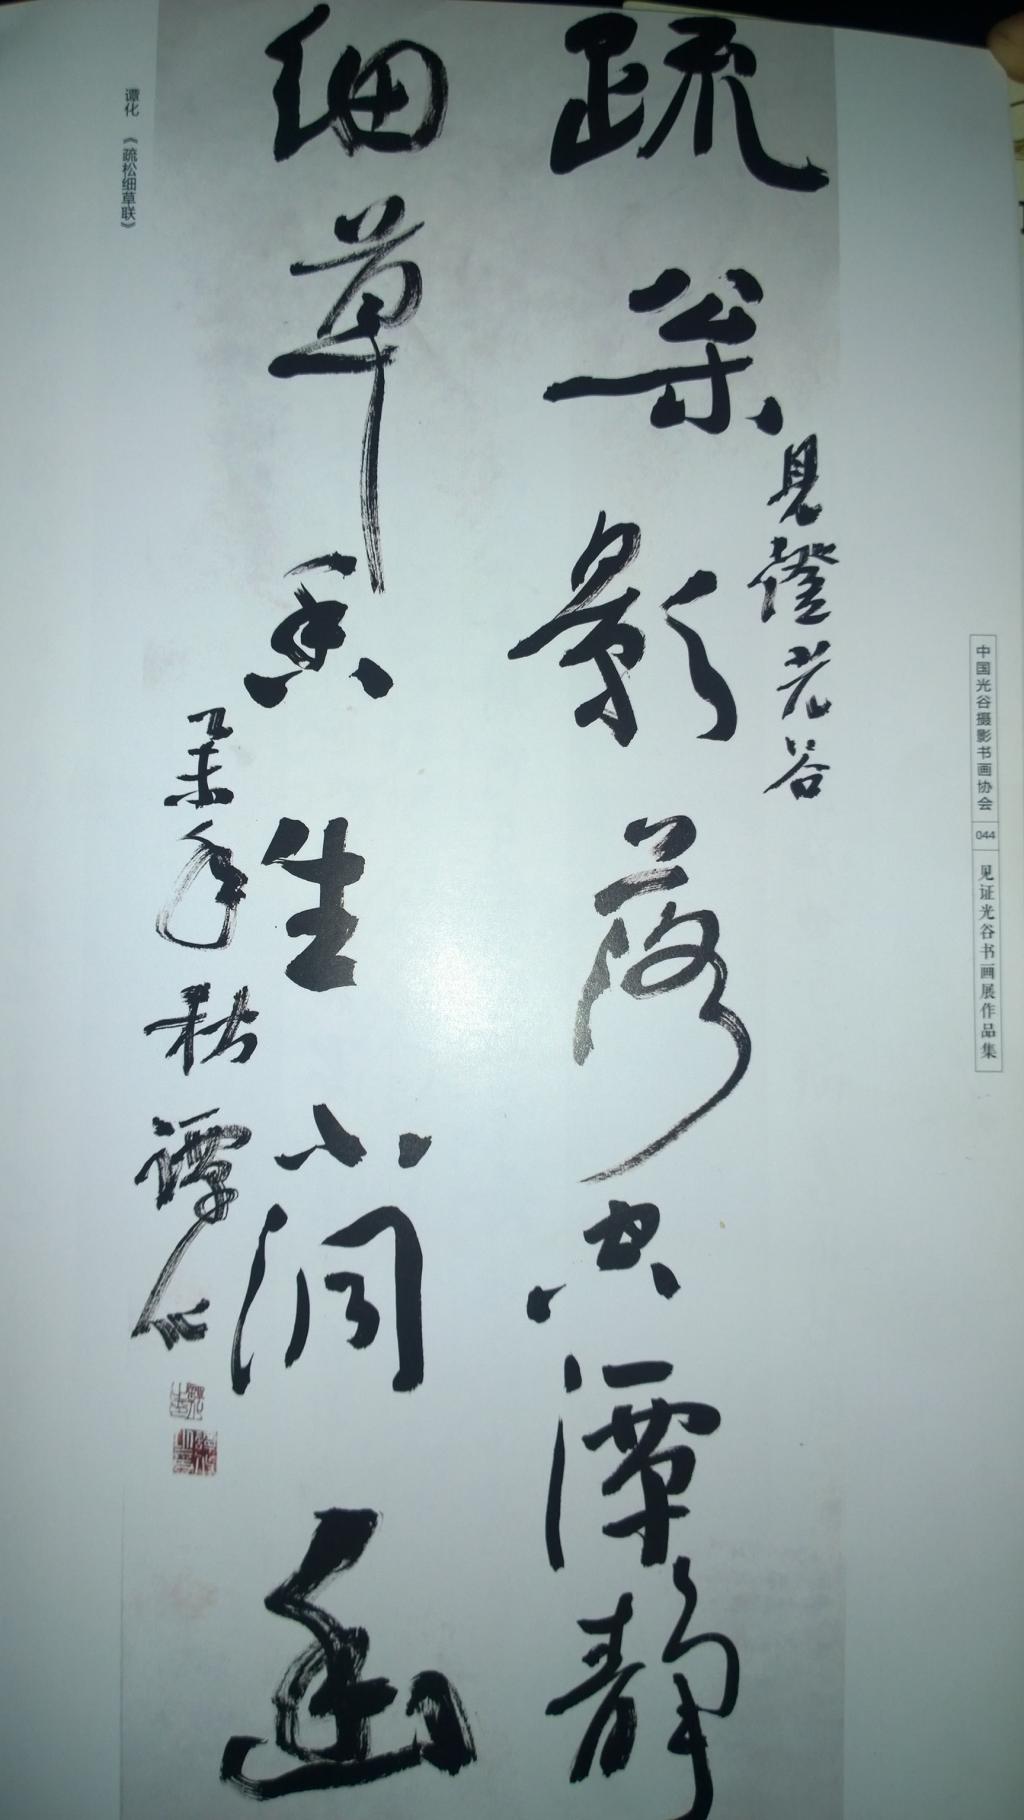 中国光谷摄影书画协会
044
见证光谷书画展作品集
見證光谷
疏松影落空潭静
细草香生小洞幽
乙未年秋譚化
谭化 《疏松细草联》